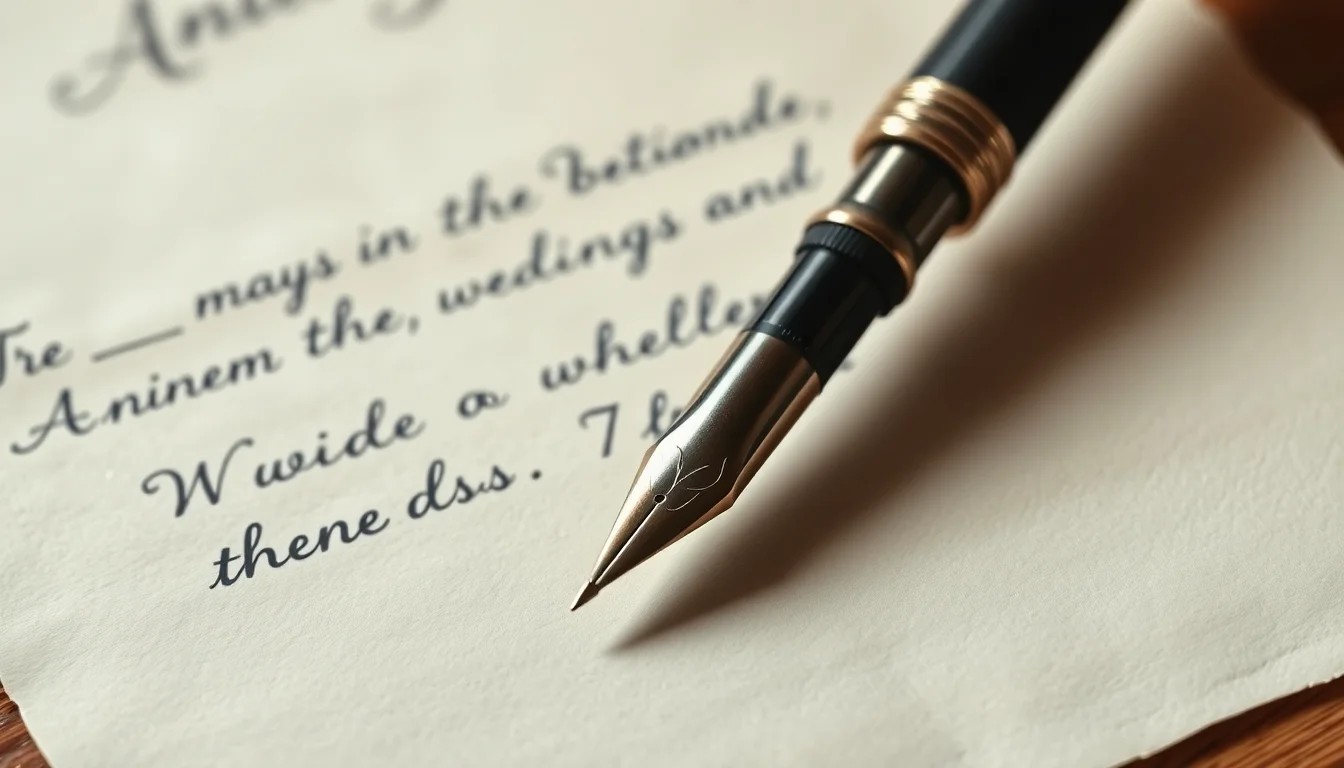 Tre ___ mays in the betionde,
Aninem the, wedings and
W wide a wheller
thene dss. 7